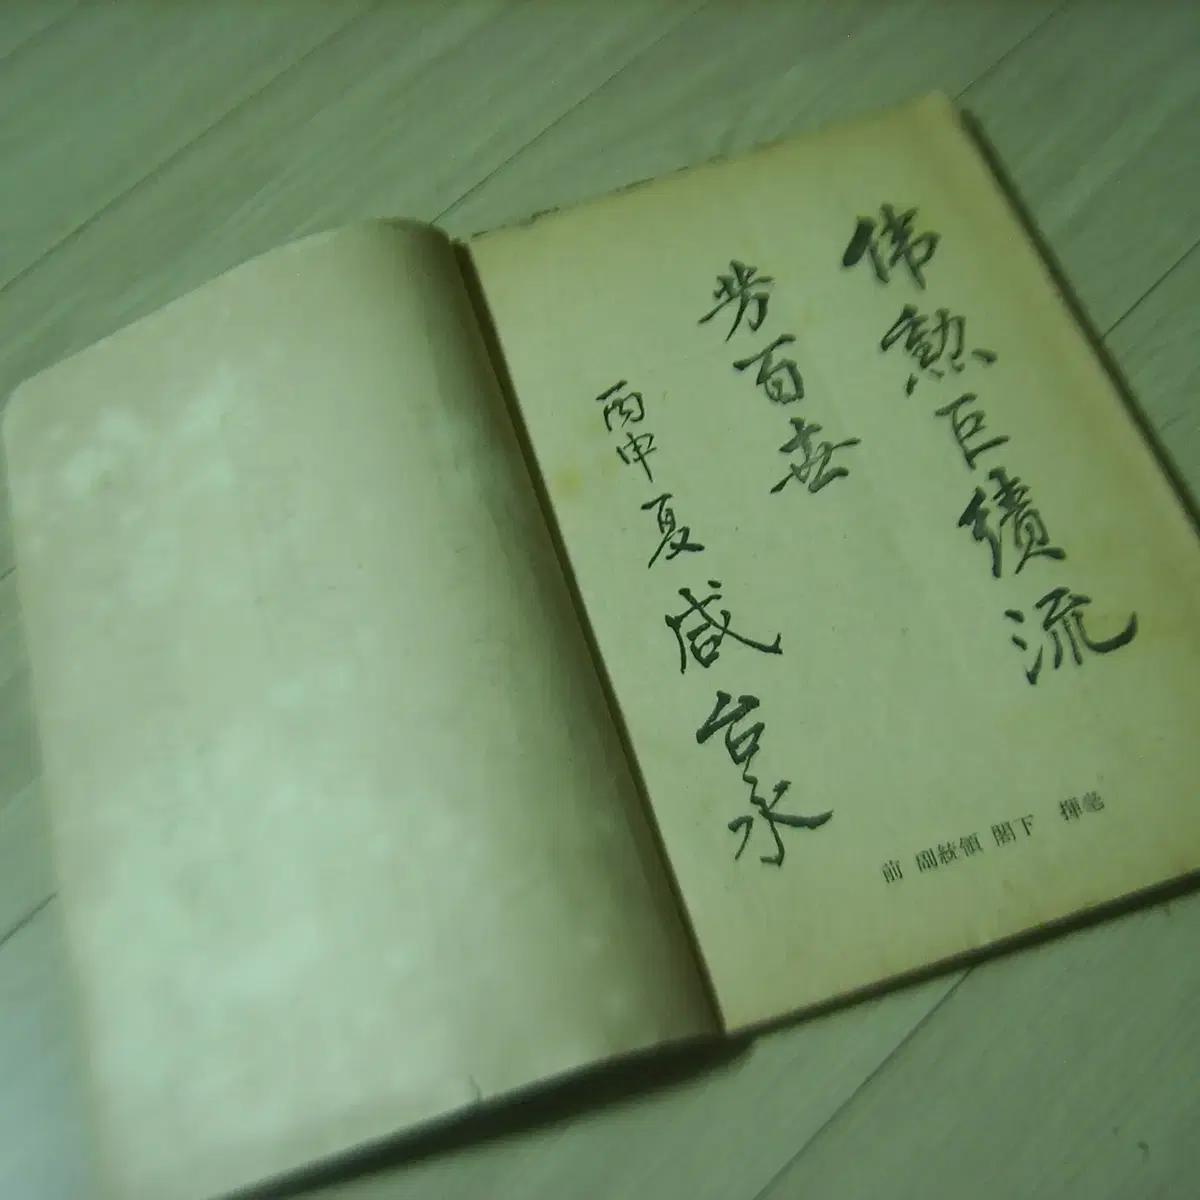 偉勲巨績流
芳百世
丙申夏 咸台永
前 副統領 閣下 揮毫